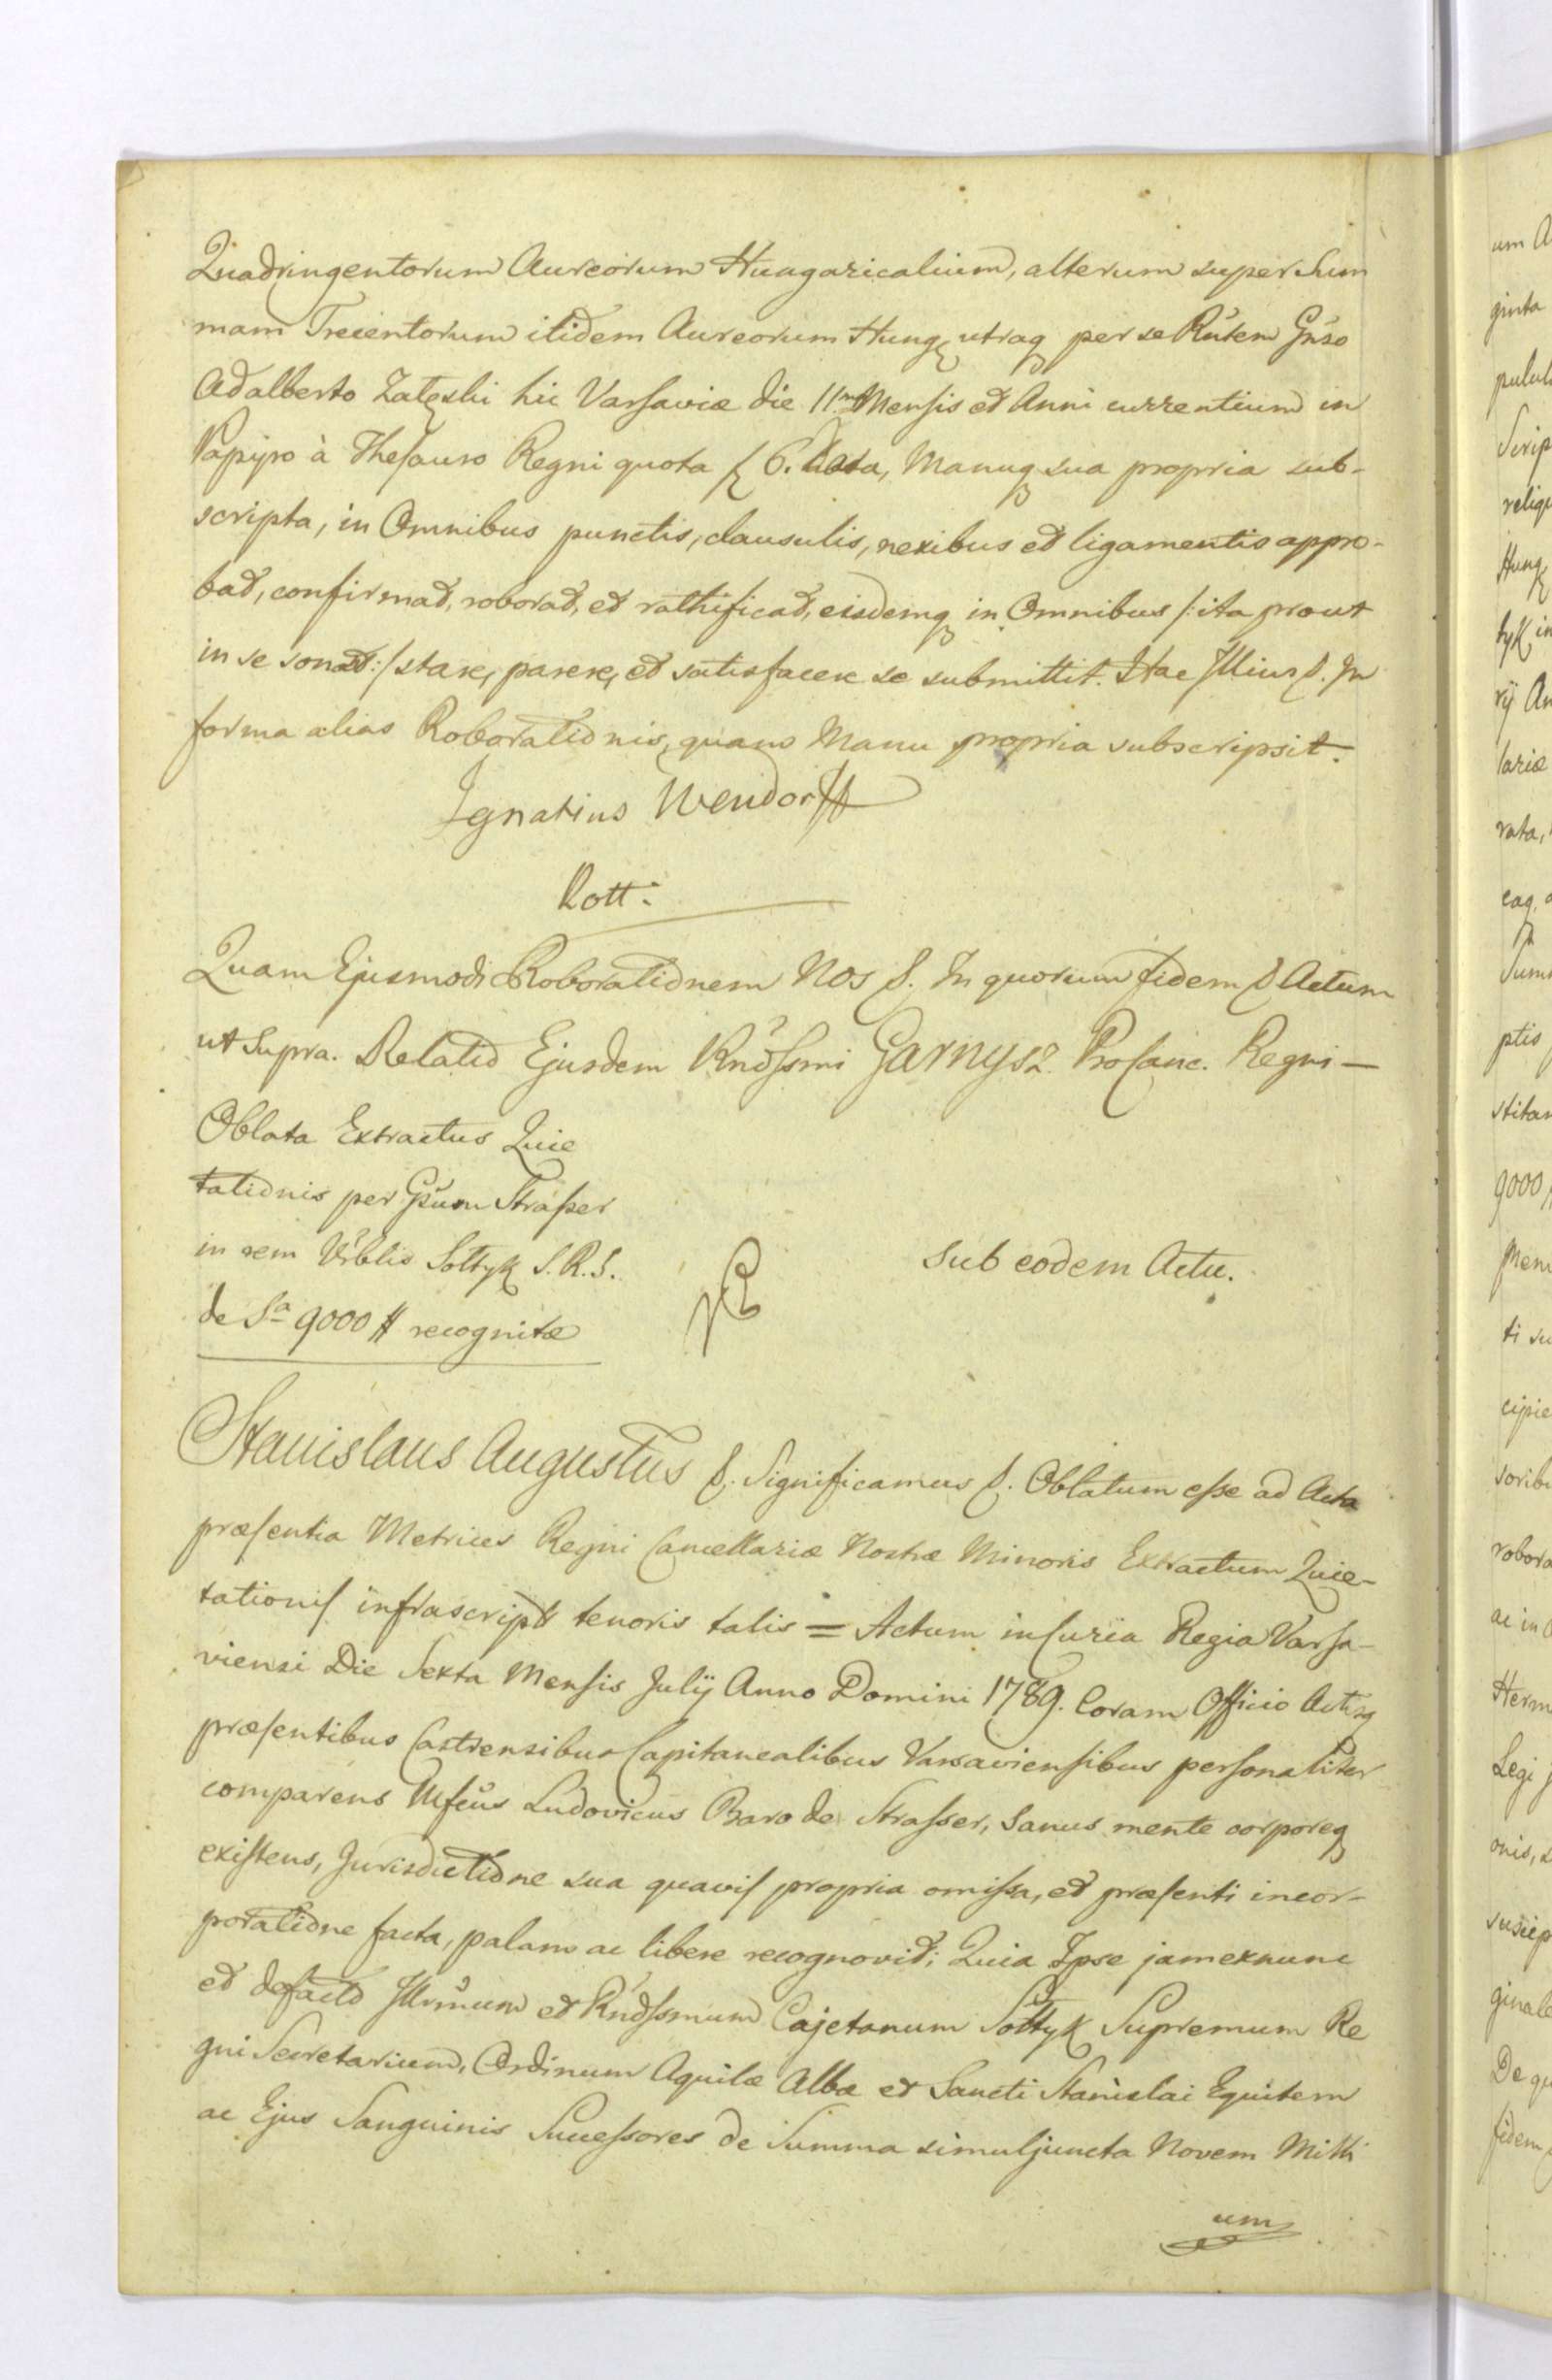 Quadringentorum Aureorum Hungaricalium, alterum super Sum
mam Trecentorum itidem Aureorum Hung, utraq per se Rntem Gnso
Adalberto Załęski hic Varsaviæ die 11ma Mensis et Anni currentium in
Papyro à Thesauro Regni quota f 6. data, Manuq sua propria sub-
scripta, in Omnibus punctis, clausulis, nexibus et ligamentis appro-
bat, confirmat, roborat, et rathificat, eisdemq in Omnibus /: ita prout
in se sonat :/ stare, parere, et satisfacere se submittit. Hac Illius p. In
forma alias Roborationis, quam Manu propria subscripsit.
Ignatius Wendorff
Rott:
Quam Ejusmodi Roborationem Nos p. In quorum fidem p Actum
ut Supra. Relatio Ejusdem Rndssmi Garnysz ProCanc. Regni —
Oblata Extractus Quie
tationis per Gsum Strasser
in rem Vrblis Sołtyk S. R. S.
de Sa 9000 # recognitæ
Sub eodem Actu.
Stanislaus Augustus p. Significamus p. Oblatum esse ad Acta
præsentia Metrices Regni Cancellariæ Nostræ Minoris Extractum Quie-
tationis infrascripti tenoris talis = Actum in Curia Regia Varsa-
viensi Die Sexta Mensis Julij Anno Domini 1789. Coram Officio Actisq
præsentibus Castrensibus Capitanealibus Varsaviensibus personaliter
comparens Mfcus Ludovicus Baro de Strasser, Sanus mente corporeq
existens, Jurisdictione sua quavis propria omissa, et præsenti incor-
poratione facta, palam ac libere recognovit; Quia Ipse jam exnunc
et defacto Illrmum et Rndssmum Cajetanum Sołtyk Supremum Re
gni Secretarium, Ordinum Aquilæ Albæ et Sancti Stanislai Equitem
ac Ejus Sanguinis Successores de Summa simuljuncta Novem Milli
um